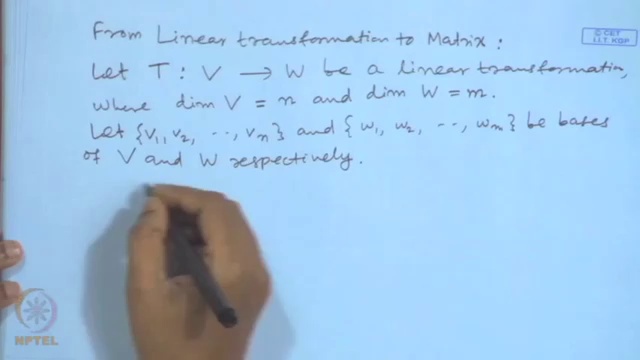 From Linear transformation to Matrix:
© CET
I.I.T. KGP
Let T: V → W be a linear transformation,
where dim V = n and dim W = m.
Let {v₁, v₂, --, vₙ} and {w₁, w₂, --, wₘ} be bases
of V and W respectively.
NPTEL